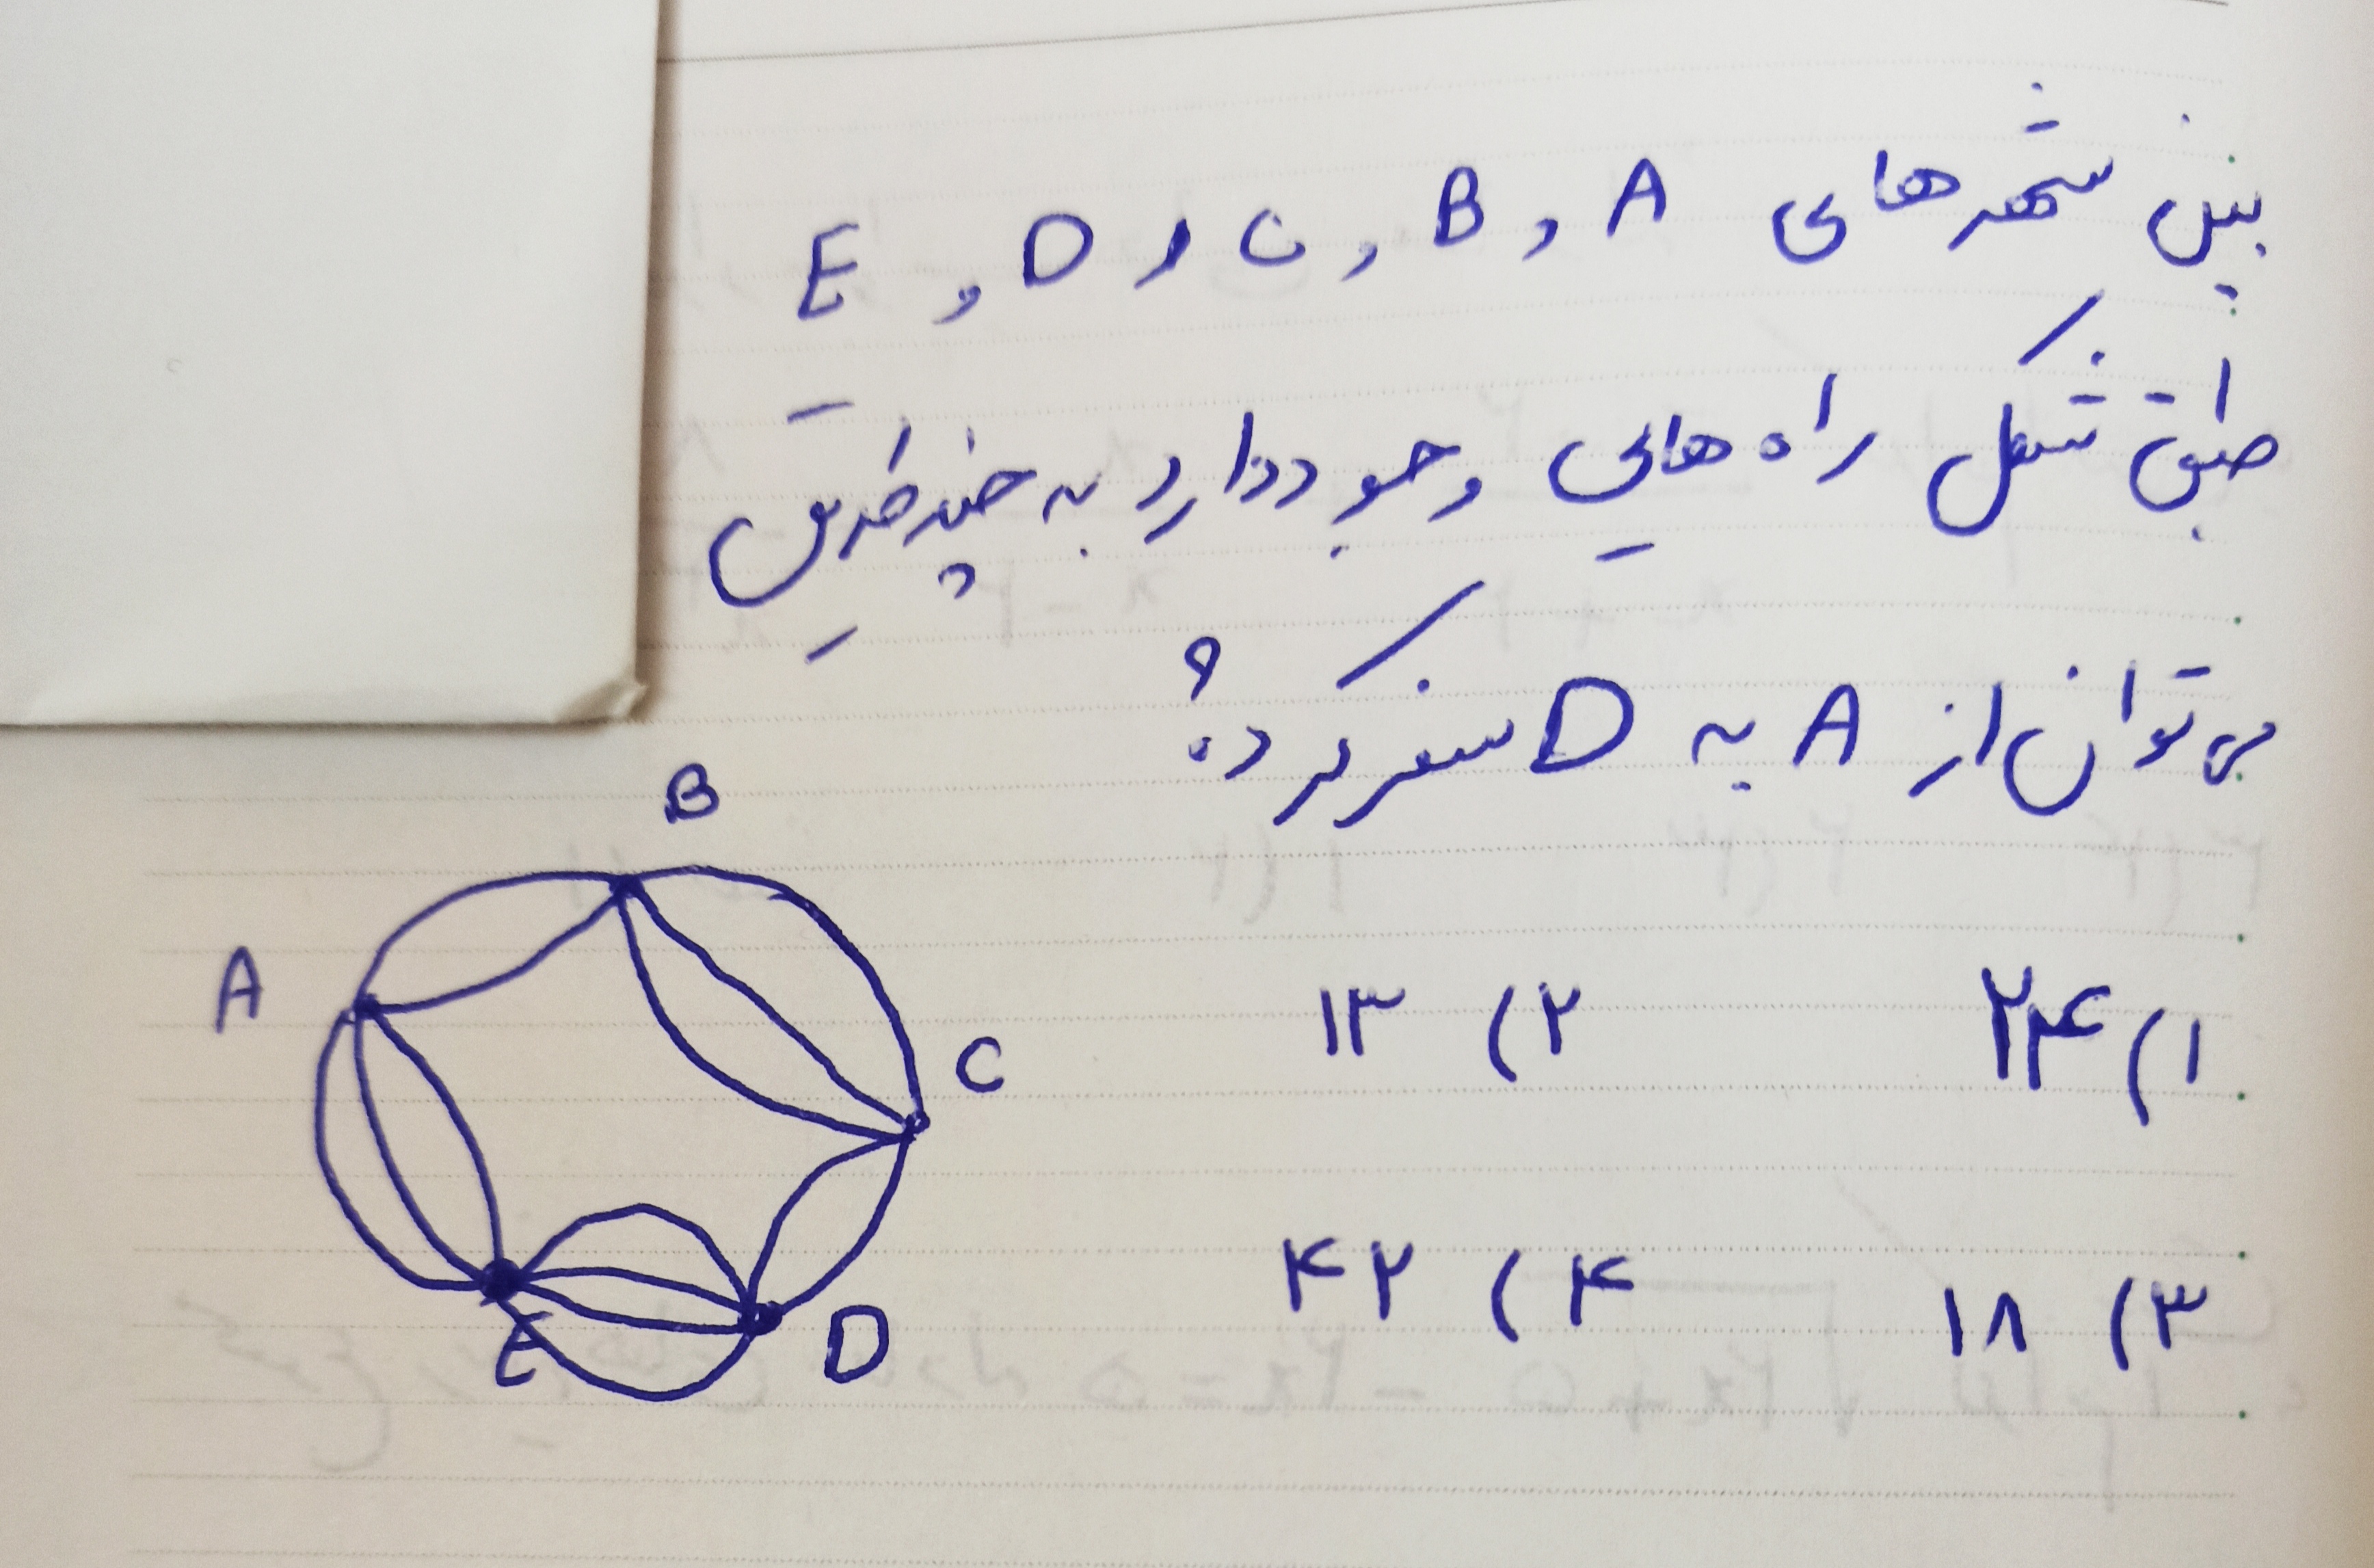 بین شهرهای A و B و C و D و E
طبق شکل راه هایی وجود دارد به چند طریق
می توان از A به D سفر کرد؟
B
A
C
E
D
۱) ۲۴
۲) ۱۳
۳) ۱۸
۴) ۴۲